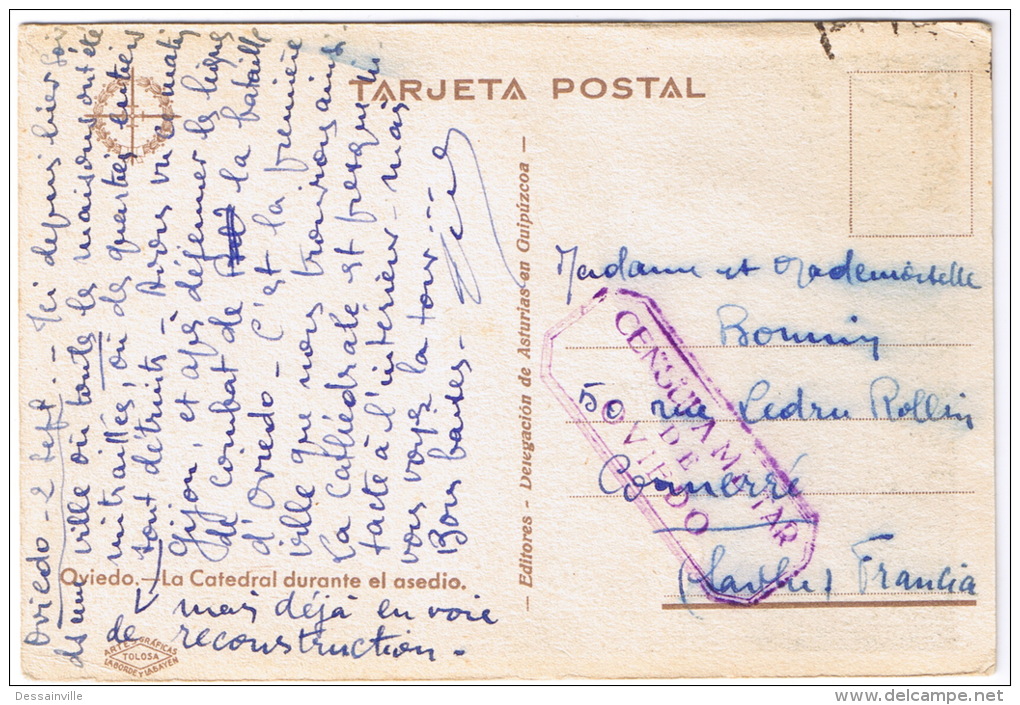 TARJETA POSTAL
Oviedo - 2 Sept. - Ici depuis hier soir
ds une ville où toute les maisons ont été
mitraillés, où des quartiers entiers
sont détruits - Avons vu ce matin
mais déjà en voie
de reconstruction -
Gijon, et après déjeuner les lignes
de combat de la bataille
d'Oviedo - C'est la première
ville que nous trouvions ainsi
La Cathédrale est presque in-
tacte à l'intérieur - mais
vous voyez la tour....
Bons baisers -
Oviedo.—La Catedral durante el asedio.
ARTES GRÁFICAS
TOLOSA
LABORDE Y LABAYEN
— Editores - Delegación de Asturias en Guipúzcoa —
Madame et Mademoiselle
Bonnin
50 rue Ledru Rollin
Connerré
(Sarthe) Francia
CENSURA MILITAR
DE
OVIEDO
Dessainville
www.delcampe.net